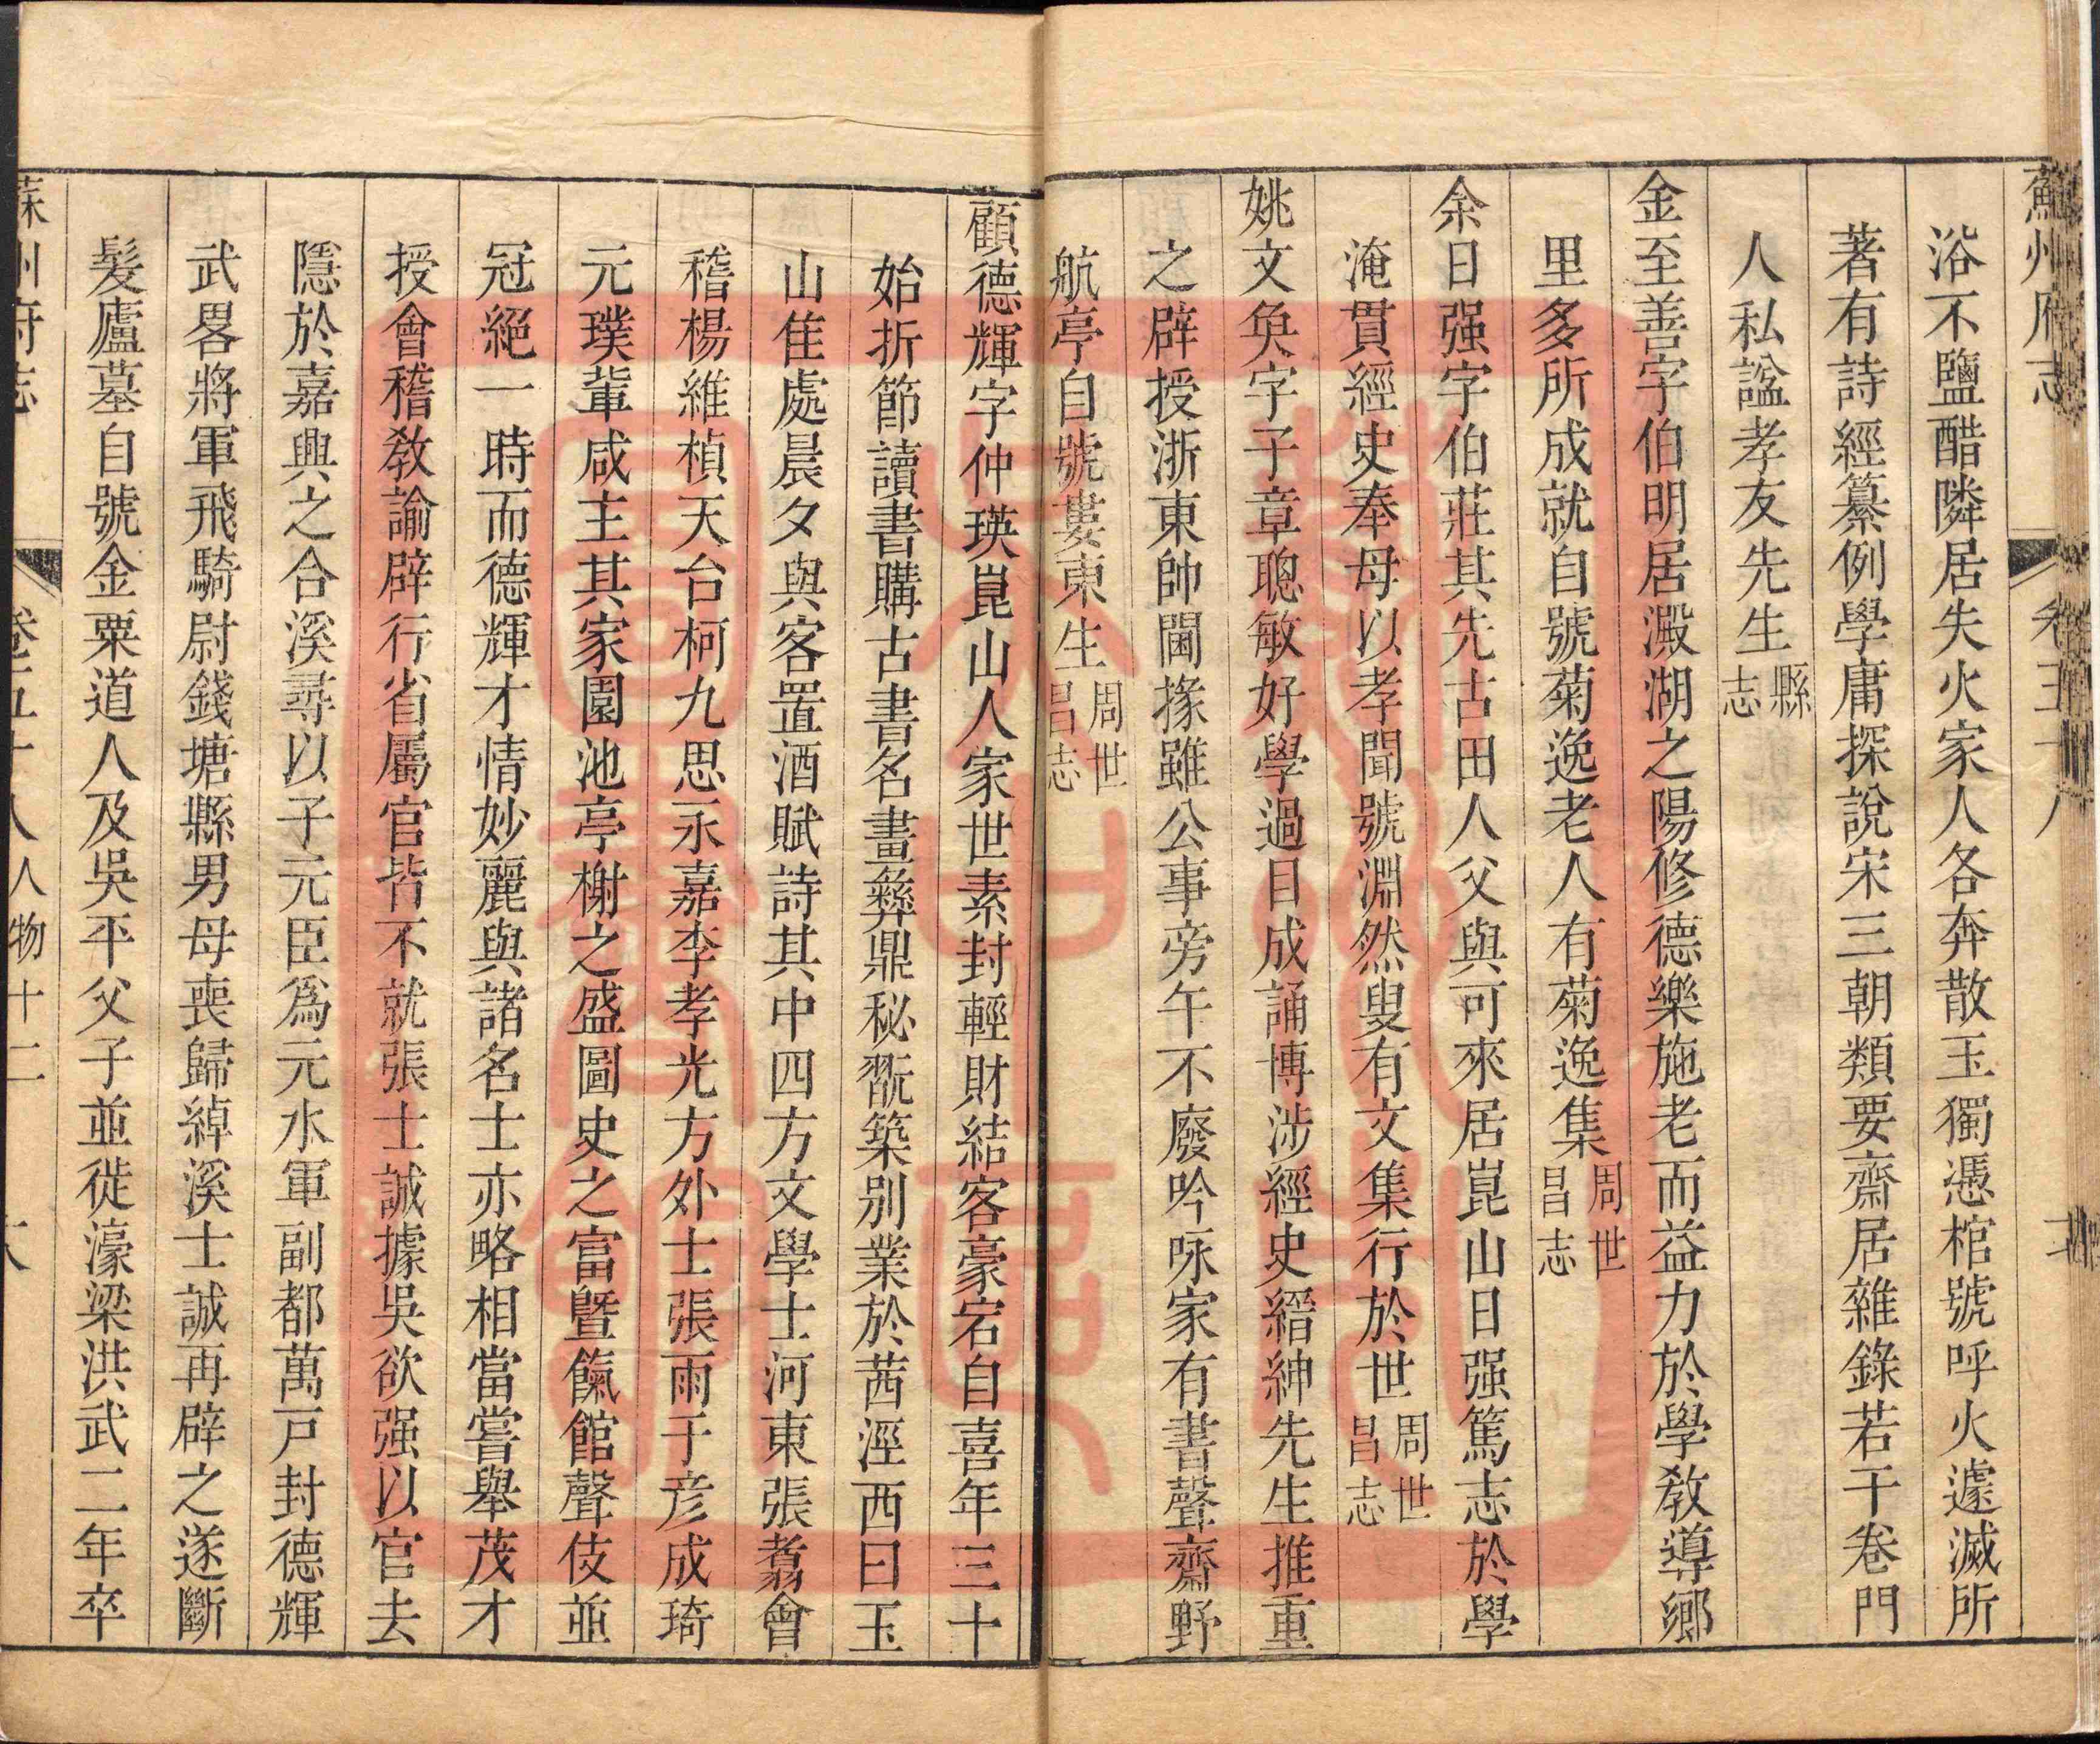 蘇州府志
浴不鹽醋隣居失火家人各奔散玉獨憑棺號呼火遽滅所
著有詩經纂例學庸探說宋三朝類要齋居雜錄若干卷門
人私諡孝友先生縣志
金至善字伯明居澱湖之陽修德樂施老而益力於學敎導鄉
里多所成就自號菊逸老人有菊逸集周世昌志
余日强字伯莊其先古田人父與可來居崑山日强篤志於學
淹貫經史奉母以孝聞號淵然叟有文集行於世周世昌志
姚文奐字子章聰敏好學過目成誦博涉經史縉紳先生推重
之辟授浙東帥閫掾雖公事旁午不廢吟咏家有書聲齋野
航亭自號婁東生周世昌志
顧德輝字仲瑛崑山人家世素封輕財結客豪宕自喜年三十
始折節讀書購古書名畫彝鼎秘翫築别業於茜涇西曰玉
山隹處晨夕與客置酒賦詩其中四方文學士河東張翥會
稽楊維楨天台柯九思永嘉李孝光方外士張雨于彥成琦
元璞輩咸主其家園池亭榭之盛圖史之富曁餼館聲伎並
冠絕一時而德輝才情妙麗與諸名士亦略相當嘗舉茂才
授會稽敎諭辟行省屬官皆不就張士誠據吳欲强以官去
隱於嘉興之合溪尋以子元臣爲元水軍副都萬戸封德輝
武畧將軍飛騎尉錢塘縣男母喪歸綽溪士誠再辟之遂斷
髮廬墓自號金粟道人及吳平父子並徙濠梁洪武二年卒
蘇州府志 卷五十八 人物十二